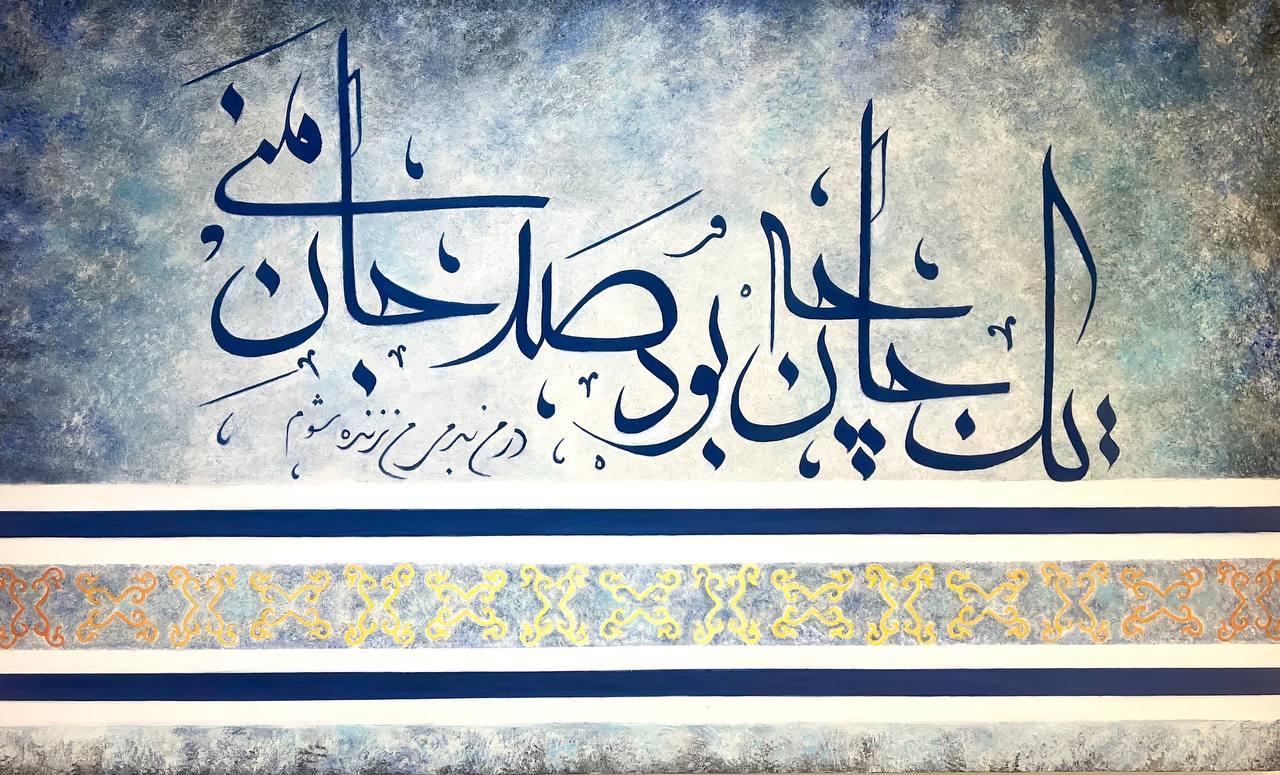 یک جان چه بود صد جان منی
در من بدمی من زنده شوم